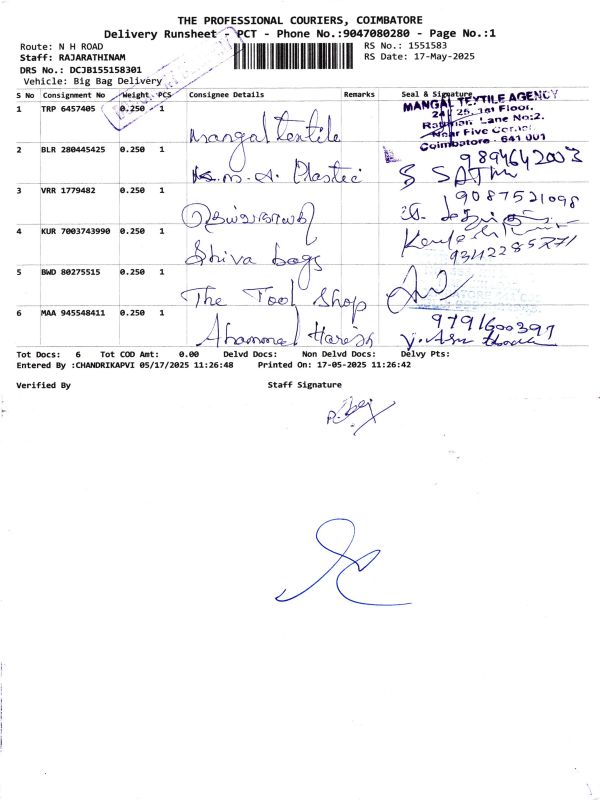 THE PROFESSIONAL COURIERS, COIMBATORE
Delivery Runsheet - PCT - Phone No.:9047080280 - Page No.:1
Route: N H ROAD
RS No.: 1551583
Staff: RAJARATHINAM
RS Date: 17-May-2025
DRS No.: DCJB155158301
Vehicle: Big Bag Delivery
S No Consignment No Weight PCS Consignee Details Remarks Seal & Signature
1 TRP 6457405 0.250 1 Mangal textile
MANGAL TEXTILE AGENCY
24/25, 1st Floor,
Rahman Lane No:2.
Near Five Corner
Coimbatore - 641 001
2 BLR 280445425 0.250 1 K.M.A. Plastic
9894642003
3 VRR 1779482 0.250 1
9087521098
4 KUR 7003743990 0.250 1 Shiva bags
5 BWD 80275515 0.250 1 The Tool Shop
6 MAA 945548411 0.250 1
9791600397
Tot Docs: 6 Tot COD Amt: 0.00 Delvd Docs: Non Delvd Docs: Delvy Pts:
Entered By :CHANDRIKAPVI 05/17/2025 11:26:48 Printed On: 17-05-2025 11:26:42
Verified By Staff Signature